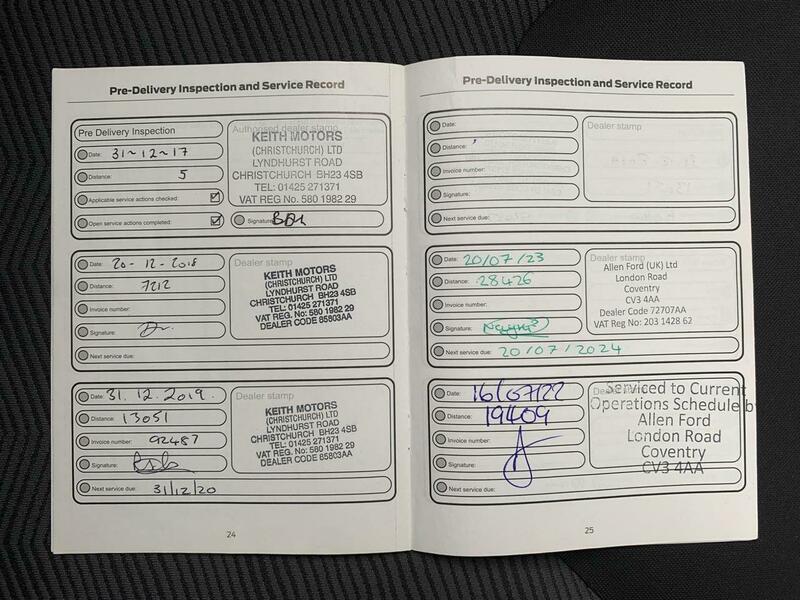 Pre-Delivery Inspection and Service Record
Pre Delivery Inspection
Date: 31-12-17
Distance: 5
Applicable service actions checked:
Open service actions completed:
Authorised dealer stamp
KEITH MOTORS
(CHRISTCHURCH) LTD
LYNDHURST ROAD
CHRISTCHURCH BH23 4SB
TEL: 01425 271371
VAT REG No. 580 1982 29
Signature:
Date: 20-12-2018
Distance: 7212
Invoice number:
Signature:
Next service due:
Dealer stamp
KEITH MOTORS
(CHRISTCHURCH) LTD
LYNDHURST ROAD
CHRISTCHURCH BH23 4SB
TEL: 01425 271371
VAT REG. No: 580 1982 29
DEALER CODE 85803AA
Date: 31.12.2019.
Distance: 13051
Invoice number: 92487
Signature:
Next service due:
31/12/20
Dealer stamp
KEITH MOTORS
(CHRISTCHURCH) LTD
LYNDHURST ROAD
CHRISTCHURCH BH23 4SB
TEL: 01425 271371
VAT REG. No: 580 1982 29
DEALER CODE 85803AA
24
Pre-Delivery Inspection and Service Record
Date:
Distance:
Invoice number:
Signature:
Next service due:
Dealer stamp
Date: 20/07/23
Distance: 28426
Invoice number:
Signature:
Next service due: 20/07/2024
Dealer stamp
Allen Ford (UK) Ltd
London Road
Coventry
CV3 4AA
Dealer Code 72707AA
VAT Reg No: 203 1428 62
Date: 16/07/22
Distance: 19409
Invoice number:
Signature:
Next service due:
Dealer stamp
Serviced to Current
Operations Schedule b
Allen Ford
London Road
Coventry
CV3 4AA
25